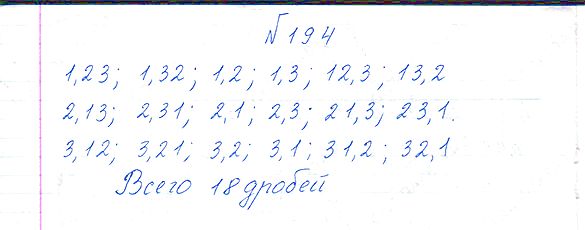 №194
1,23; 1,32; 1,2; 1,3; 12,3; 13,2
2,13; 2,31; 2,1; 2,3; 21,3; 23,1.
3,12; 3,21; 3,2; 3,1; 31,2; 32,1
Всего 18 дробей